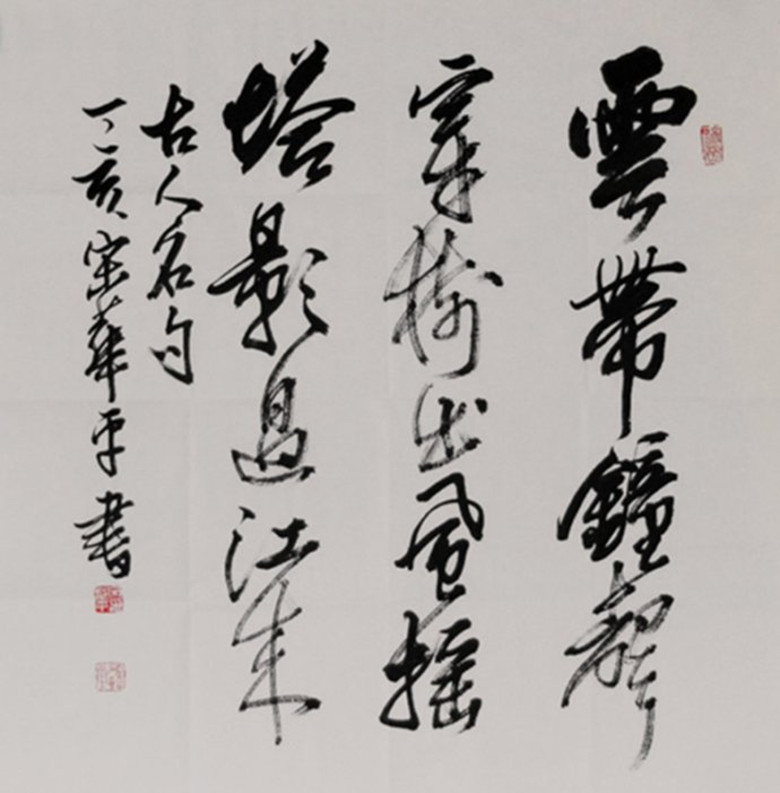 雲帶鐘聲
穿樹出風搖
塔影過江來
古人名句
丁亥宗華平書